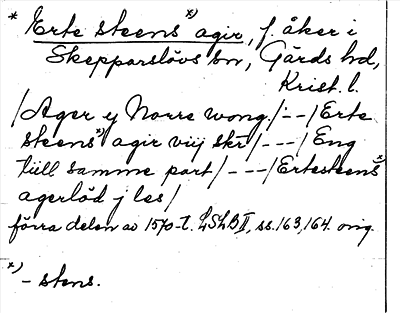 * Erte steens*) agir, f. åker i
Skepparslövs sn, Gärds hd,
Krist. l.
/Ager y Norre wong/--/Erte
steens*) agir viij skr/---/Eng
till samme part/---/Ertesteens*)
agerlöd j les/
förra delen av 1570-t. LSLB II, ss. 163, 164. orig.
*)
- stens.